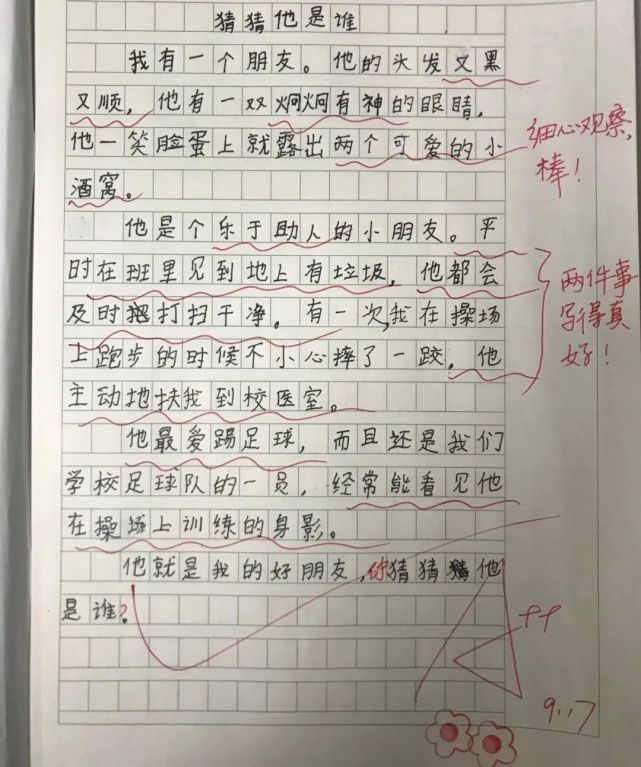 猜猜他是谁
我有一个朋友。他的头发又黑
又顺，他有一双炯炯有神的眼睛，
他一笑脸蛋上就露出两个可爱的小
酒窝。
细心观察，
棒！
他是个乐于助人的小朋友。平
时在班里见到地上有垃圾，他都会
及时把打扫干净。有一次，我在操场
上跑步的时候不小心摔了一跤，他
主动地扶我到校医室。
两件事
写得真
好！
他最爱踢足球，而且还是我们
学校足球队的一员，经常能看见他
在操场上训练的身影。
他就是我的好朋友，你猜猜猜他
是谁？
9.17